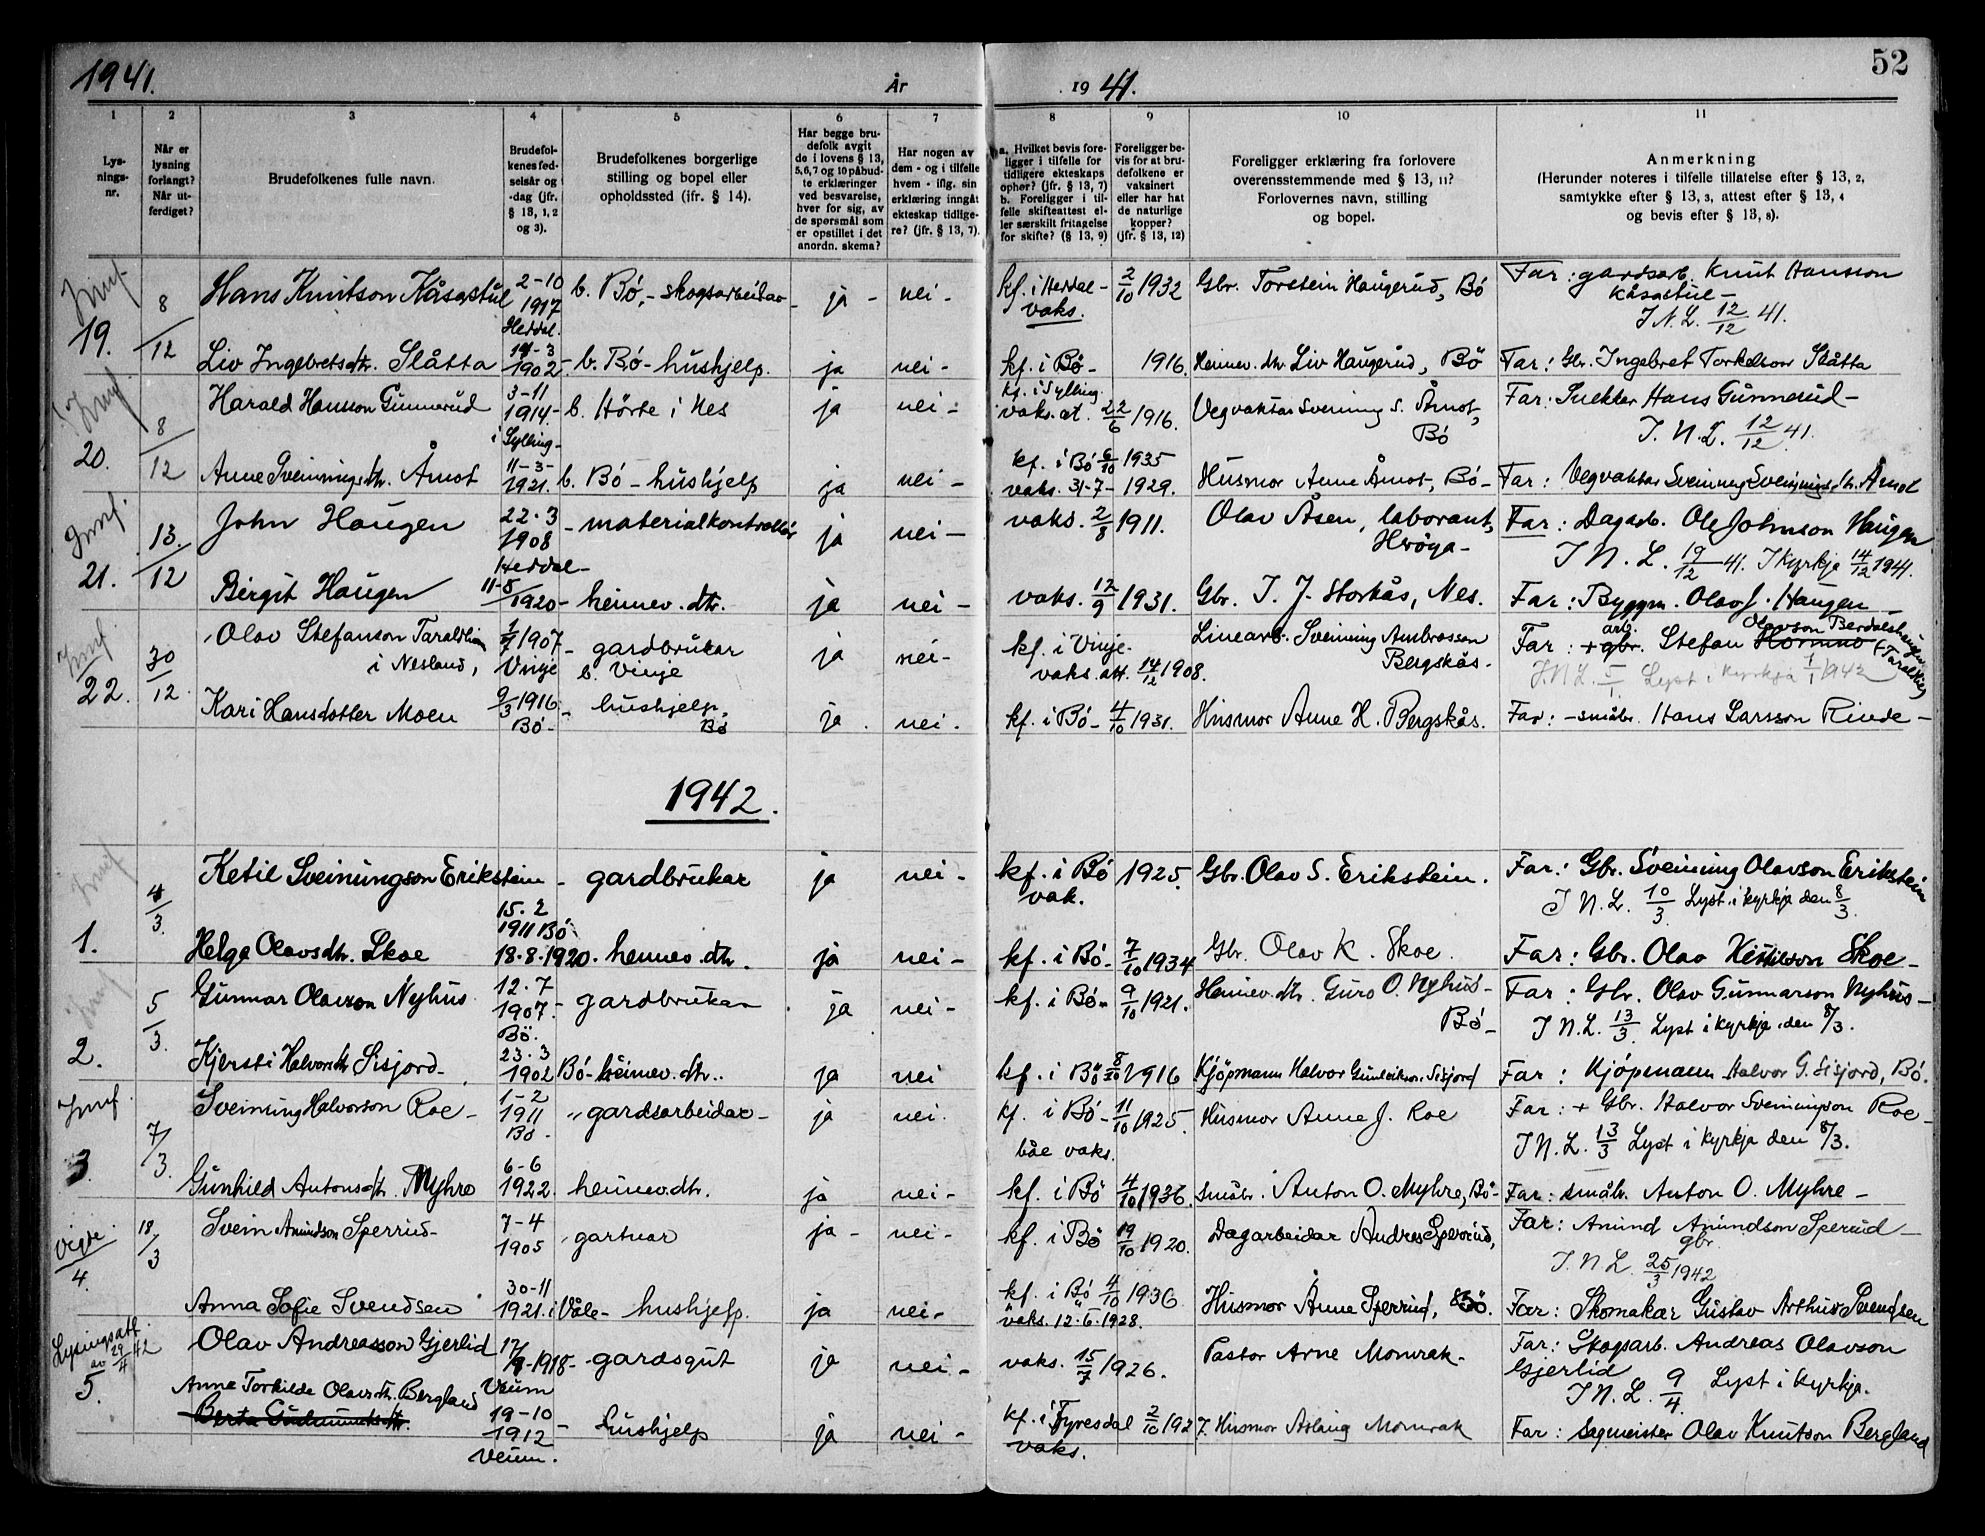 52
1941.
År
19 41.
1 2 3 4 5 6 7 8 9 10 11
Lysnings-nr.
Når er lysning forlangt? Når utferdiget?
Brudefolkenes fulle navn.
Brudefolkenes fødselsår og -dag (jfr. § 13, 1, 2 og 3).
Brudefolkenes borgerlige stilling og bopel eller opholdssted (jfr. § 14).
Har begge brudefolk avgit de i lovens § 13, 5, 6, 7 og 10 påbudte erklæringer ved besvarelse, hver for sig, av de spørsmål som er opstillet i det anordn. skema?
Har nogen av dem - og i tilfelle hvem - iflg. sin erklæring inngått ekteskap tidligere? (jfr. § 13, 7).
a. Hvilket bevis foreligger i tilfelle for tidligere ekteskaps ophør? (jfr. § 13, 7) b. Foreligger i tilfelle skifteattest eller særskilt fritagelse for skifte? (§ 13, 9)
Foreligger bevis for at brudefolkene er vaksinert eller har hat de naturlige kopper? (jfr. § 13, 12)
Foreligger erklæring fra forlovere overensstemmende med § 13, 11? Forlovernes navn, stilling og bopel.
Anmerkning (Herunder noteres i tilfelle tillatelse efter § 13, 2, samtykke efter § 13, 3, attest efter § 13, 4 og bevis efter § 13, 8).
19. 8/12 Hans Knutson Kåsastul 2-10 1917 Heddal. b. Bø, - skogsarbeidar - ja - nei - kf. i Heddal - vaks. 2/10 1932 Gbr. Torstein Haugerud, Bø Far: gardsarb. Knut Hansson Kåsastul - I N. L. 12/12 41.
Liv Ingebretsdtr. Slåtta 14-3 1902 - b. Bø - hushjelp. ja nei - kf. i Bø - 1916. Heimev. dtr. Liv Haugerud, Bø Far: Gbr. Ingebret Torkelson Slåtta
20. 8/12 Harald Hansson Gunnerud 3-11 1914 - i Sylling - b. Hörte i Nes ja nei - kf. i Sylling vaks. at. 22/6 1916. Vegvaktar Sveinung S. Åmot, Bø Far: Hans Gunnerud - I. N. L. 12/12 41.
Anne Sveinungsdtr. Åmot 11-3- 1921. b. Bø - hushjelp ja nei - kf. i Bø 6/10 1935 vaks. 31-7-1929. Husmor Anne Åmot, Bø - Far: Vegvaktar Sveinung Sveinungs Åmot
21. 13/12 John Haugen 22.3 1908 Heddal - - materialkontrollør ja nei - vaks. 2/8 1911. Olav Åsen, laborant, Herøya - Far: Dagarb. Ole Johnson Haugen I N. L. 19/12 41. I Kyrkja 14/12 1941.
Birgit Haugen 11-8/1920 - heimev. dtr. ja nei - vaks. 12/9 1931. Gbr. I. J. Storkås, Nes. Far: Byggm. Olav J. Haugen
22. 30/12 Olav Stefanson Taraldlien i Nesland, 1/7 1907 - Vinje gardbrukar b. Vinje ja nei - kf. i Vinje - vaks. att. 14/12 1908. Linearb. Sveinung Ambrosson Bergskås - Far: + arb. gbr. Stefan Olavson I. N L. 5/1. Lyst i kyrkja 1/1 1942
Kari Hansdotter Moen 9/3 1916 Bø - hushjelp, Bø ja nei - kf. i Bø - 4/10 1931. Husmor Anne H. Bergskås. Far: - småbr. Hans Larsson Rinde -
1942.
1. 4/3. Ketil Sveinungson Erikstein 15.2 1911 Bø - gardbrukar ja nei - kf. i Bø vak. 1925. Gbr. Olav S. Erikstein. Far: Gbr. Sveinung Olavson Erikstein I N. L. 10/3 Lyst i kyrkja den 8/3.
Helga Olavsdtr. Skoe 18.8.1920. heimev. dtr. ja nei - kf. i Bø - 7/10 1934 Gbr. Olav K. Skoe. Far: Gbr. Olav Kittilson Skoe -
2. 5/3. Gunnar Olavson Nyhus 12.7 1907. Bø. - gardbrukar ja nei - kf. i Bø - 9/10 1921. Heimev. dtr. Guro O. Nyhus - Bø - Far: Gbr. Olav Gunnarson Nyhus - I N. L. 13/3. Lyst i kyrkja den 8/3.
Kjersti Halvorsdtr Sisjord - 23.3 1902 Bø - heimev. dtr. ja nei kf. i Bø 1916 Kjöpmann Halvor Gunleikson Sisjord Far: Kjöpmann Halvor G. Sisjord, Bø.
3. 7/3. Sveinung Halvorson Roe - 1-2 1911 Bø - gardsarbeidar - ja nei. kf. i Bø - 11/10 1925. båe vaks. Husmor Anne J. Roe Far: + Gbr. Halvor Sveinungson Roe - I N. L. 13/3 Lyst i kyrkja den 8/3.
Gunhild Antonsdtr. Myhre 6-6 1922. heimev. dtr. ja nei - kf. i Bø 4/10 1936. Småbr. Anton O. Myhre, Bø - Far: småbr. Anton O. Myhre -
Vigde 4. 18/3 Svein Amundson Sperrud - 7-4 1905 gartnar ja - nei - kf. i Bø 19/10 1920. Dagarbeidar Andres Sperrud, Far: Amund Amundson Sperud - gbr. I. N L. 25/3 1942
Anna Sofie Svendsen 30-11 1921. i Våle - hushjelp. ja nei - kf. i Bø 4/10 1936 vaks. 12.6.1928. Husmor Anne Sperrud, Bø. Far: Skomakar Gustav Arthur Svendsen
Lysingsatt. av 29/4 42 5. Olav Andreasson Gjerlid 17/9-1918 - Veum gardsgut ja nei - vaks. 15/7 1926. Pastor Arne Momrak - Far: Skogsarb. Andreas Olavson Gjerlid I N. L. 9/4. Lyst i kyrkja.
Anne Torhilde Olavsdtr. Bergland 19-10 1912 Veum. - hushjelp ja nei - kf. i Fyresdal 2/10 1927. vaks. Husmor Aslaug Momrak Far: Sagmeister Olav Knutson Bergland